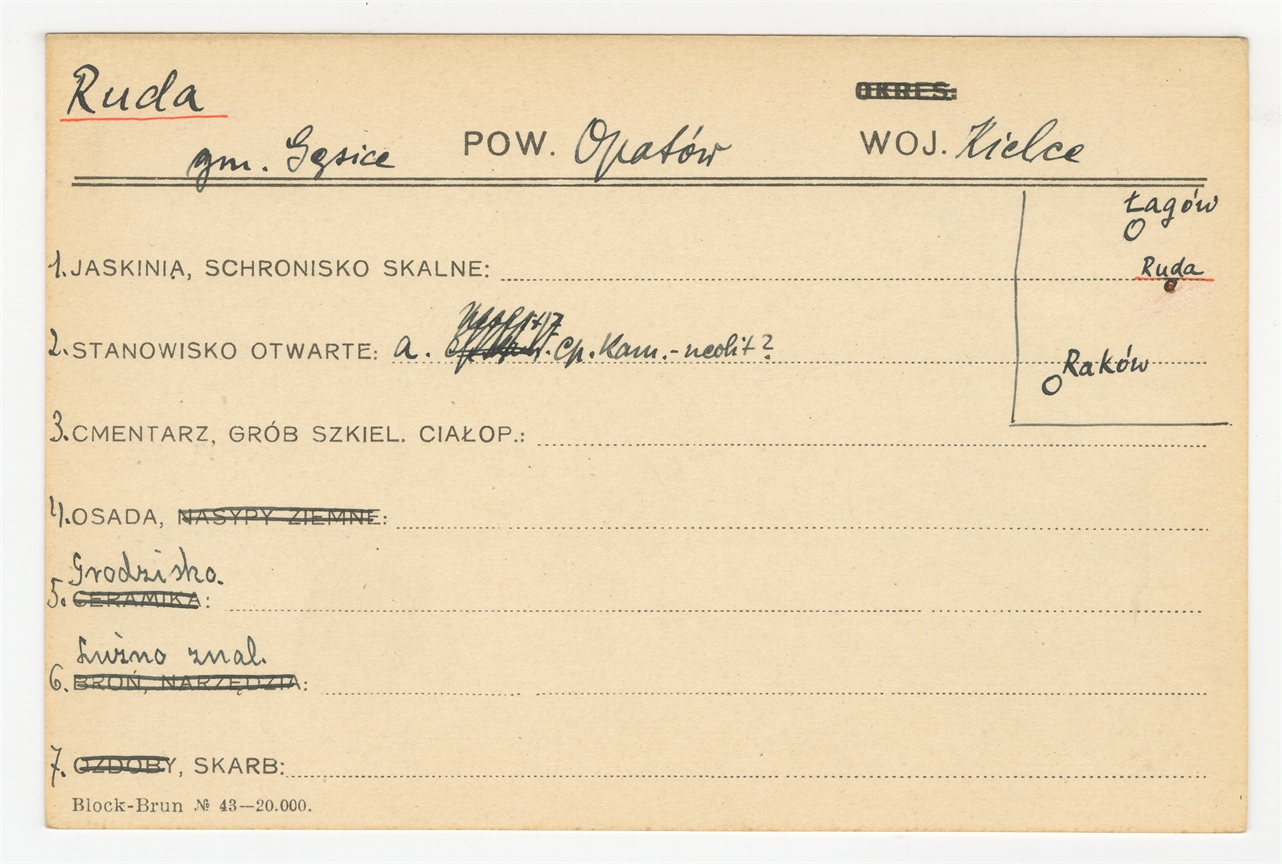 Ruda
OKRES:
gm. Gęsice POW. Opatów WOJ. Kielce
Łagów
1. JASKINIA, SCHRONISKO SKALNE:
Ruda
2. STANOWISKO OTWARTE: a. ep. kam.-neolit?
Raków
3. CMENTARZ, GRÓB SZKIEL. CIAŁOP.:
4. OSADA, NASYPY ZIEMNE:
Grodzisko.
5. CERAMIKA:
Luźno znal.
6. BROŃ, NARZĘDZIA:
7. OZDOBY, SKARB:
Block-Brun № 43—20.000.